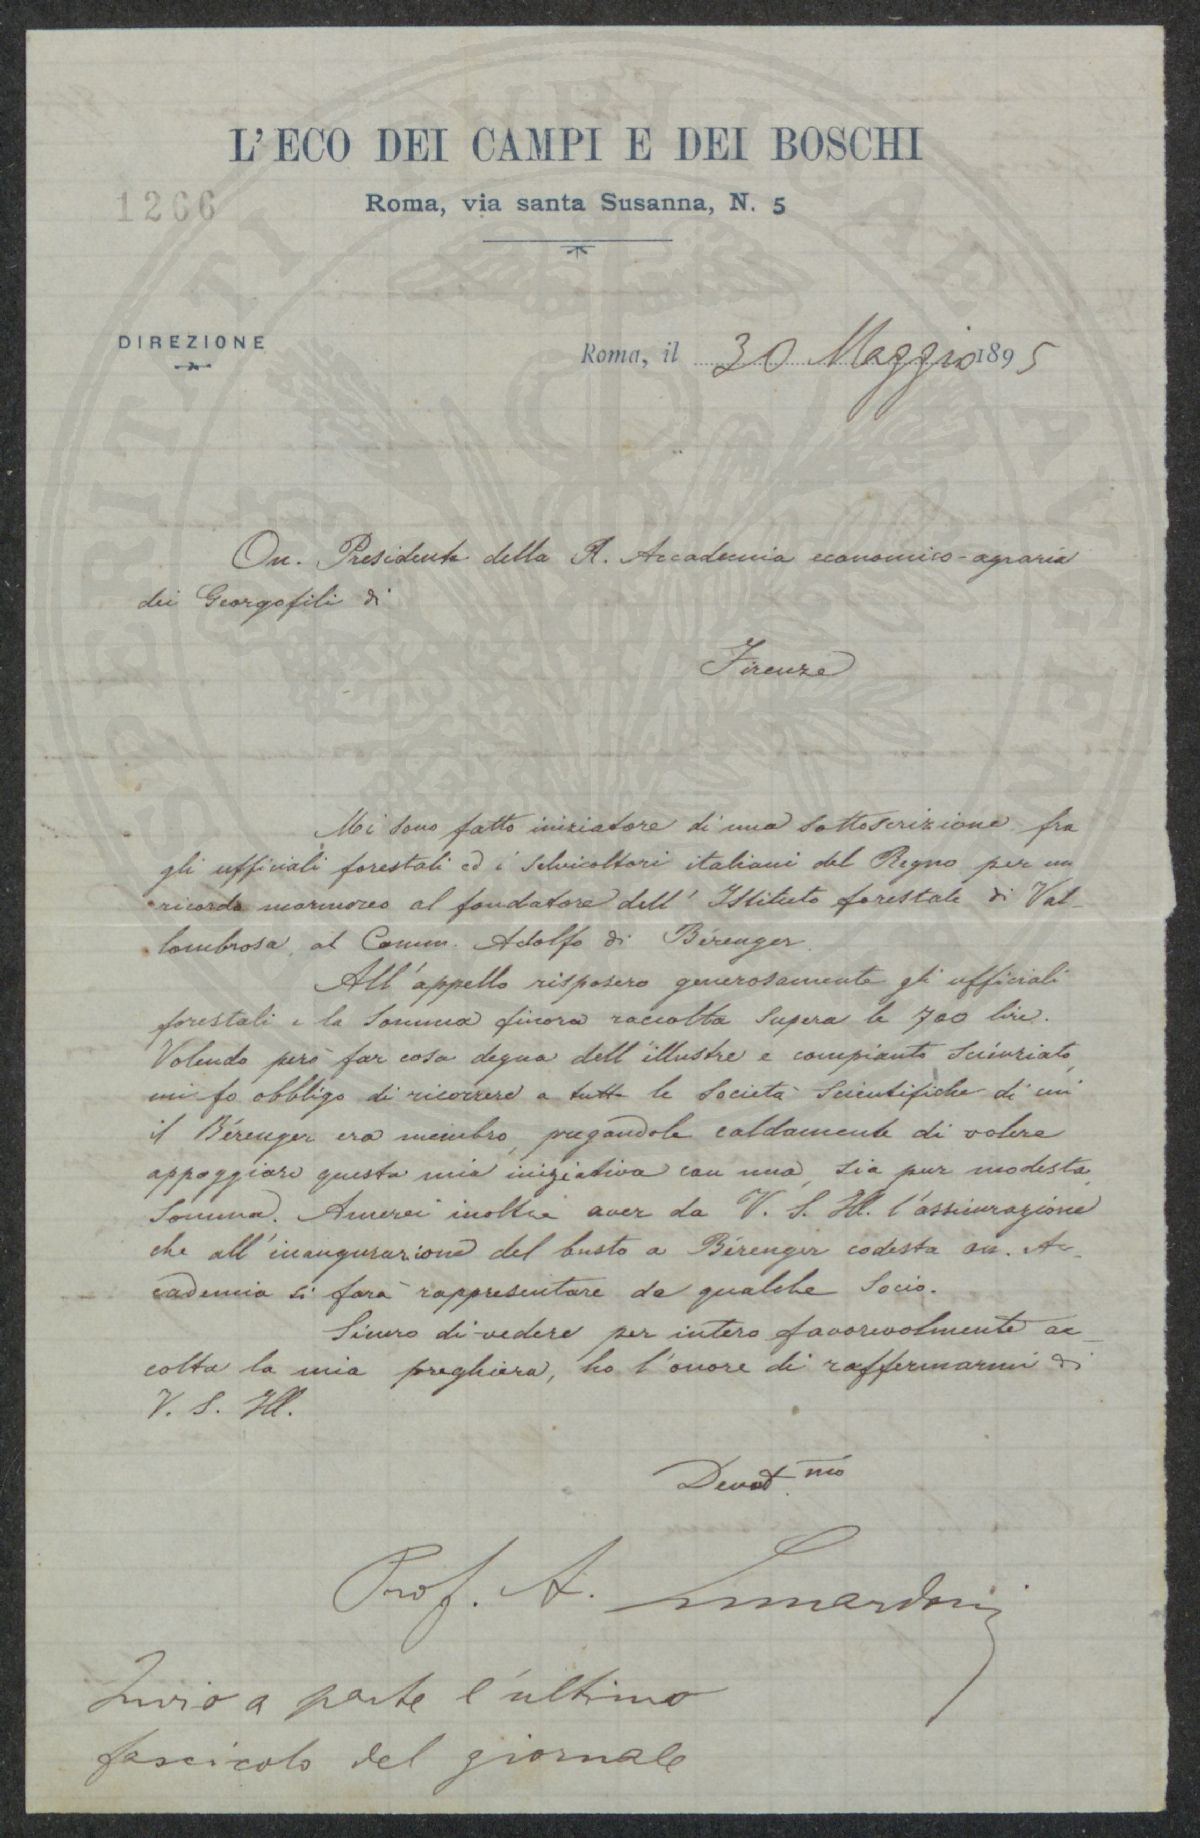 L'ECO DEI CAMPI E DEI BOSCHI
1266
Roma, via santa Susanna, N. 5
DIREZIONE
Roma, il 30 Maggio 1895
On. Presidente della R. Accademia economico-agraria
dei Georgofili di
Firenze
Mi sono fatto iniziatore di una sottoscrizione fra
gli ufficiali forestali ed i selvicoltori italiani del Regno per un
ricordo marmoreo al fondatore dell'Istituto forestale di Val-
lombrosa, al Comm. Adolfo di Bérenger.
All'appello risposero generosamente gli ufficiali
forestali e la somma finora raccolta supera le 700 lire.
Volendo però far cosa degna dell'illustre e compianto scienziato,
mi fo obbligo di ricorrere a tutte le Società scientifiche di cui
il Bérenger era membro, pregandole caldamente di volere
appoggiare questa mia iniziativa con una, sia pur modesta,
somma. Amerei inoltre aver da V. S. Ill. l'assicurazione
che all'inaugurazione del busto a Bérenger codesta on. Ac-
cademia si farà rappresentare da qualche Socio.
Sicuro di vedere per intero favorevolmente ac-
colta la mia preghiera, ho l'onore di raffermarmi di
V. S. Ill.
Devot.mo
Prof. A.
Invio a parte l'ultimo
fascicolo del giornale